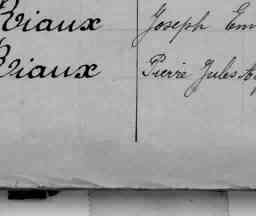 Riaux Joseph Em
Riaux Pierre Jules